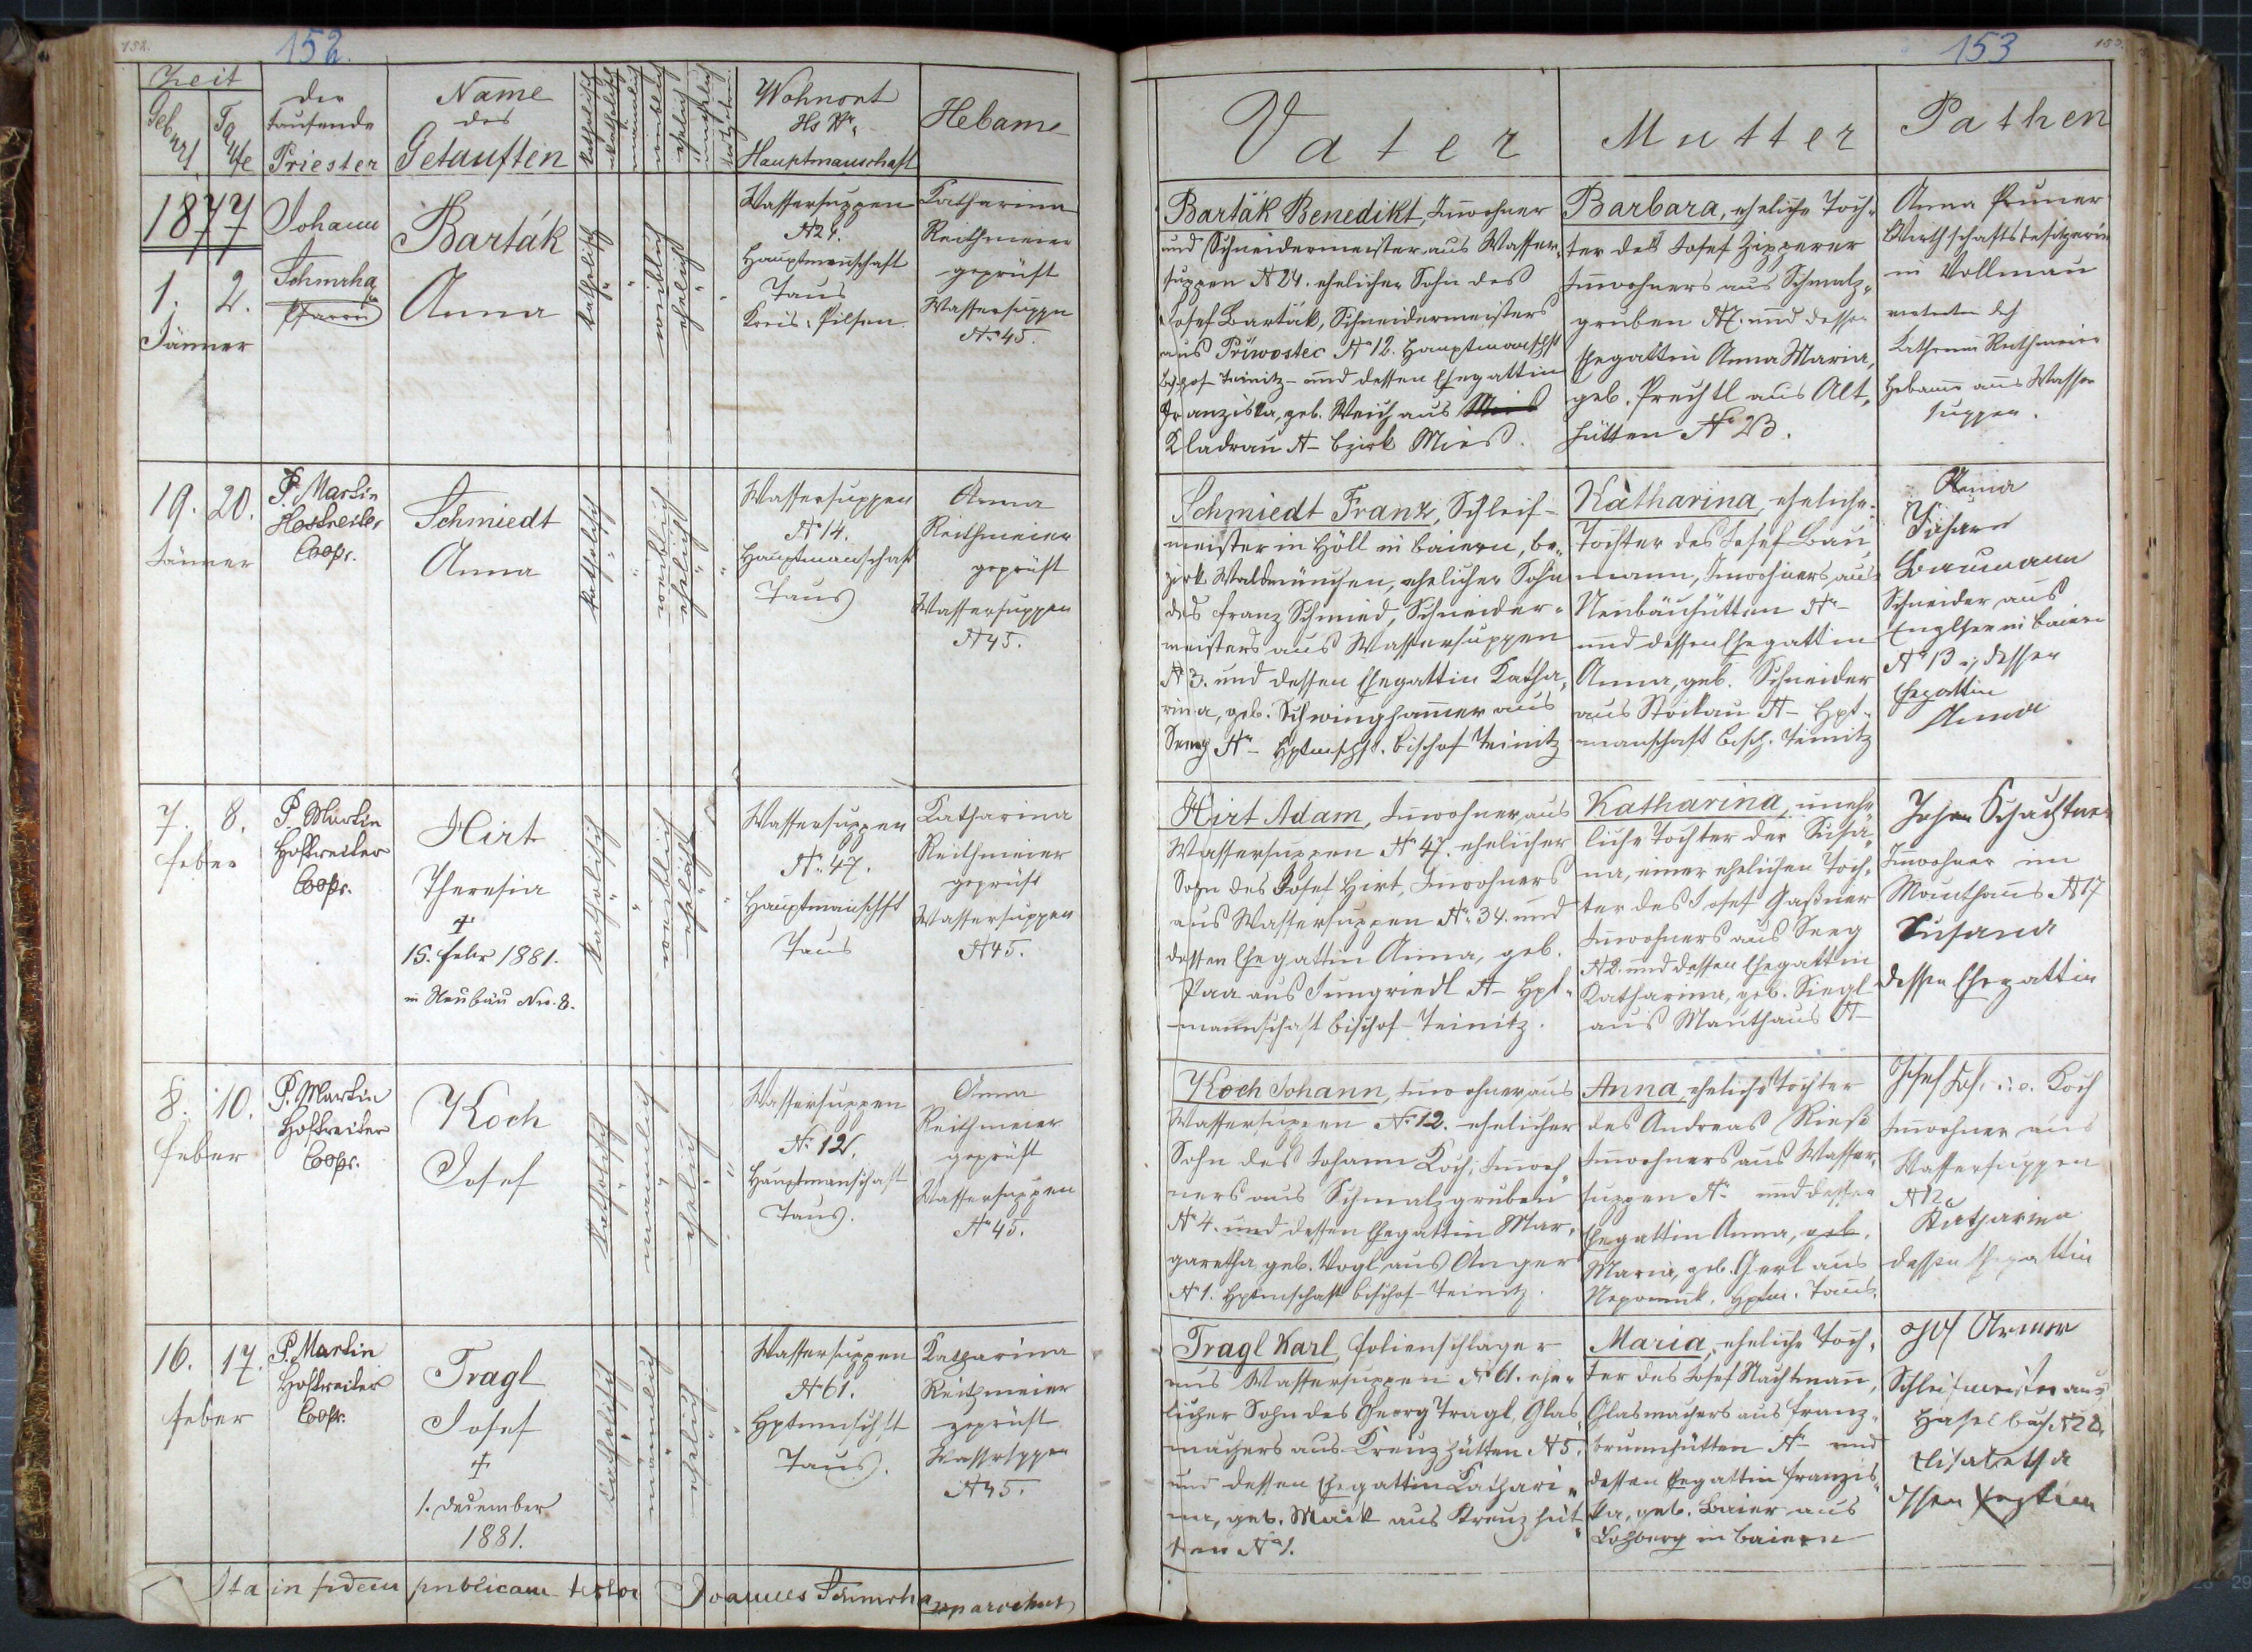 152.
152.
Zeit
Geburt
Taufe
Der
taufende
Priester
Name
des
Getauften
katholisch
akatholisch
männlich
weiblich
ehelich
unehelich
Wohnort
Hs Nr.
Hauptmanschaft
Hebame
1877
1. 2.
Jänner
Johann
Schmrha
Pfarrer
Barták
Anna
katholisch
weiblich
ehelich
Wassersuppen
N 24.
Hauptmannschaft
Taus
Kreis: Pilsen.
Katharina
Reithmeier
geprüft
Wassersuppen
No 45.
19. 20.
Jänner
P. Martin
Hostreiter
Coopr.
Schmiedt
Anna
katholisch
weiblich
ehelich
Wassersuppen
No 14.
Hauptmanschaft
Taus
Anna
Reithmeier
geprüft
Wassersuppen
N 45.
7. 8.
Feber
P. Martin
Hostreiter
Coopr.
Hirt
Theresia
†
15. Febr 1881.
in Neubäu Nr. 8.
katholisch
weiblich
ehelich
Wassersuppen
No. 47.
Hauptmanschft
Taus
Katharina
Reithmeier
geprüft
Wassersuppen
N 45.
8. 10.
Feber
P. Martin
Hostreiter
Coopr.
Koch
Josef
katholisch
männlich
ehelich
Wassersuppen
No 12.
Hauptmanschaft
Taus.
Anna
Reithmeier
geprüft
Wassersuppen
No 45.
16. 17.
Feber
P. Martin
Hostreiter
Coopr.
Tragl
Josef
†
1. December
1881.
katholisch
männlich
ehelich
Wassersuppen
N 61.
Hptmnschft
Taus.
Katharina
Reithmeier
geprüft
Wassersppen
N 45.
Ita in fidem publicam testor Joannes Schmrha parochus
153
153.
Vater
Mutter
Pathen
Barták Benedikt, Inwohner
und Schneidermeister aus Wasser-
suppen N 24. ehelicher Sohn des
Josef Barták, Schneidermeisters
aus Přiwostec No 12. Hauptmanschft
Bischof Teinitz - und dessen Ehegattin
Franziska, geb. Weich aus Mies
Kladrau N - Bzirk Mies.
Barbara, eheliche Toch-
ter des Josef Zipperer
Inwohners aus Schmalz-
gruben N 7. und dessen
Ehegattin Anna Maria,
geb. Prechtl aus Alt-
hütten No 23.
Anna Pruner
Wirthschaftsbesitzerin
in Vollmau
vertreten dch
Katharina Reithmeier
Hebame aus Wasser
suppen.
Schmiedt Franz, Schleif-
meister in Höll in Baiern, Be-
zirk Waldmünchen, ehelicher Sohn
des Franz Schmied, Schneider-
meisters aus Wassersuppen
No 3. und dessen Ehegattin Katha-
rina, geb. Schwinghammer aus
Seeg No - Hptmschft. Bischof Teinitz
Katharina, eheliche
Tochter des Josef Bau
mann, Inwohners aus
Neubäuhütten No -
und dessen Ehegattin
Anna, geb. Schneider
aus Stockau N - Hpt-
manschaft Bisch. Teinitz
Anna
Baumann
Schneider aus
in Baiern
No 13 dessen
Ehegattin
Anna
Hirt Adam, Inwohner aus
Wassersuppen No 47. ehelicher
Sohn des Josef Hirt, Inwohners
aus Wassersuppen No. 34. und
dessen Ehegattin Anna, geb.
Paa aus Jungriedl N - Hpt-
mannschaft Bischof-Teinitz.
Katharina, unehe-
liche Tochter der Susa-
na, einer ehelichen Toch-
ter des Josef Gaßner
Inwohners aus Seeg
N 2. und dessen Ehegattin
Katharina, geb. Siegl
aus Mauthaus N -
Johan Schachtner
Inwohner im
Mauthaus N 17
Susana
dessen Ehegattin
Koch Johann, Inwohner aus
Wassersuppen No. 12. ehelicher
Sohn des Johann Koch, Inwoh
ners aus Schmalzgruben
No 4. und dessen Ehegattin Mar-
garetha, geb. Vogl aus Anger
No 1. Hptmschaft Bischof-Teinitz.
Anna, eheliche Tochter
des Andreas Rieß
Inwohners aus Wasser-
suppen No. und dessen
Ehegattin Anna, geb.
Maria, geb. Gerl aus
Nepomuk, Hptm. Taus.
Josef Koch
Inwohner aus
Wassersuppen
N 12
Katharina
dessen Ehegattin
Tragl Karl, Folienschlager
aus Wassersuppen No 61. ehe-
licher Sohn des Georg Tragl, Glas
machers aus Kreuzhütten N 5.
und dessen Ehegattin Kathari-
na, geb. Mauk aus Kreuzhüt-
ten No 1.
Maria, eheliche Toch-
ter des Josef Nachtmann,
Glasmachers aus Franz-
brunnhütten No - und
dessen Ehegattin Franzis-
ka, geb. Baier aus
Lohberg in Baiern
Schleifmeister aus
Haselbach N 28
Elisabetha